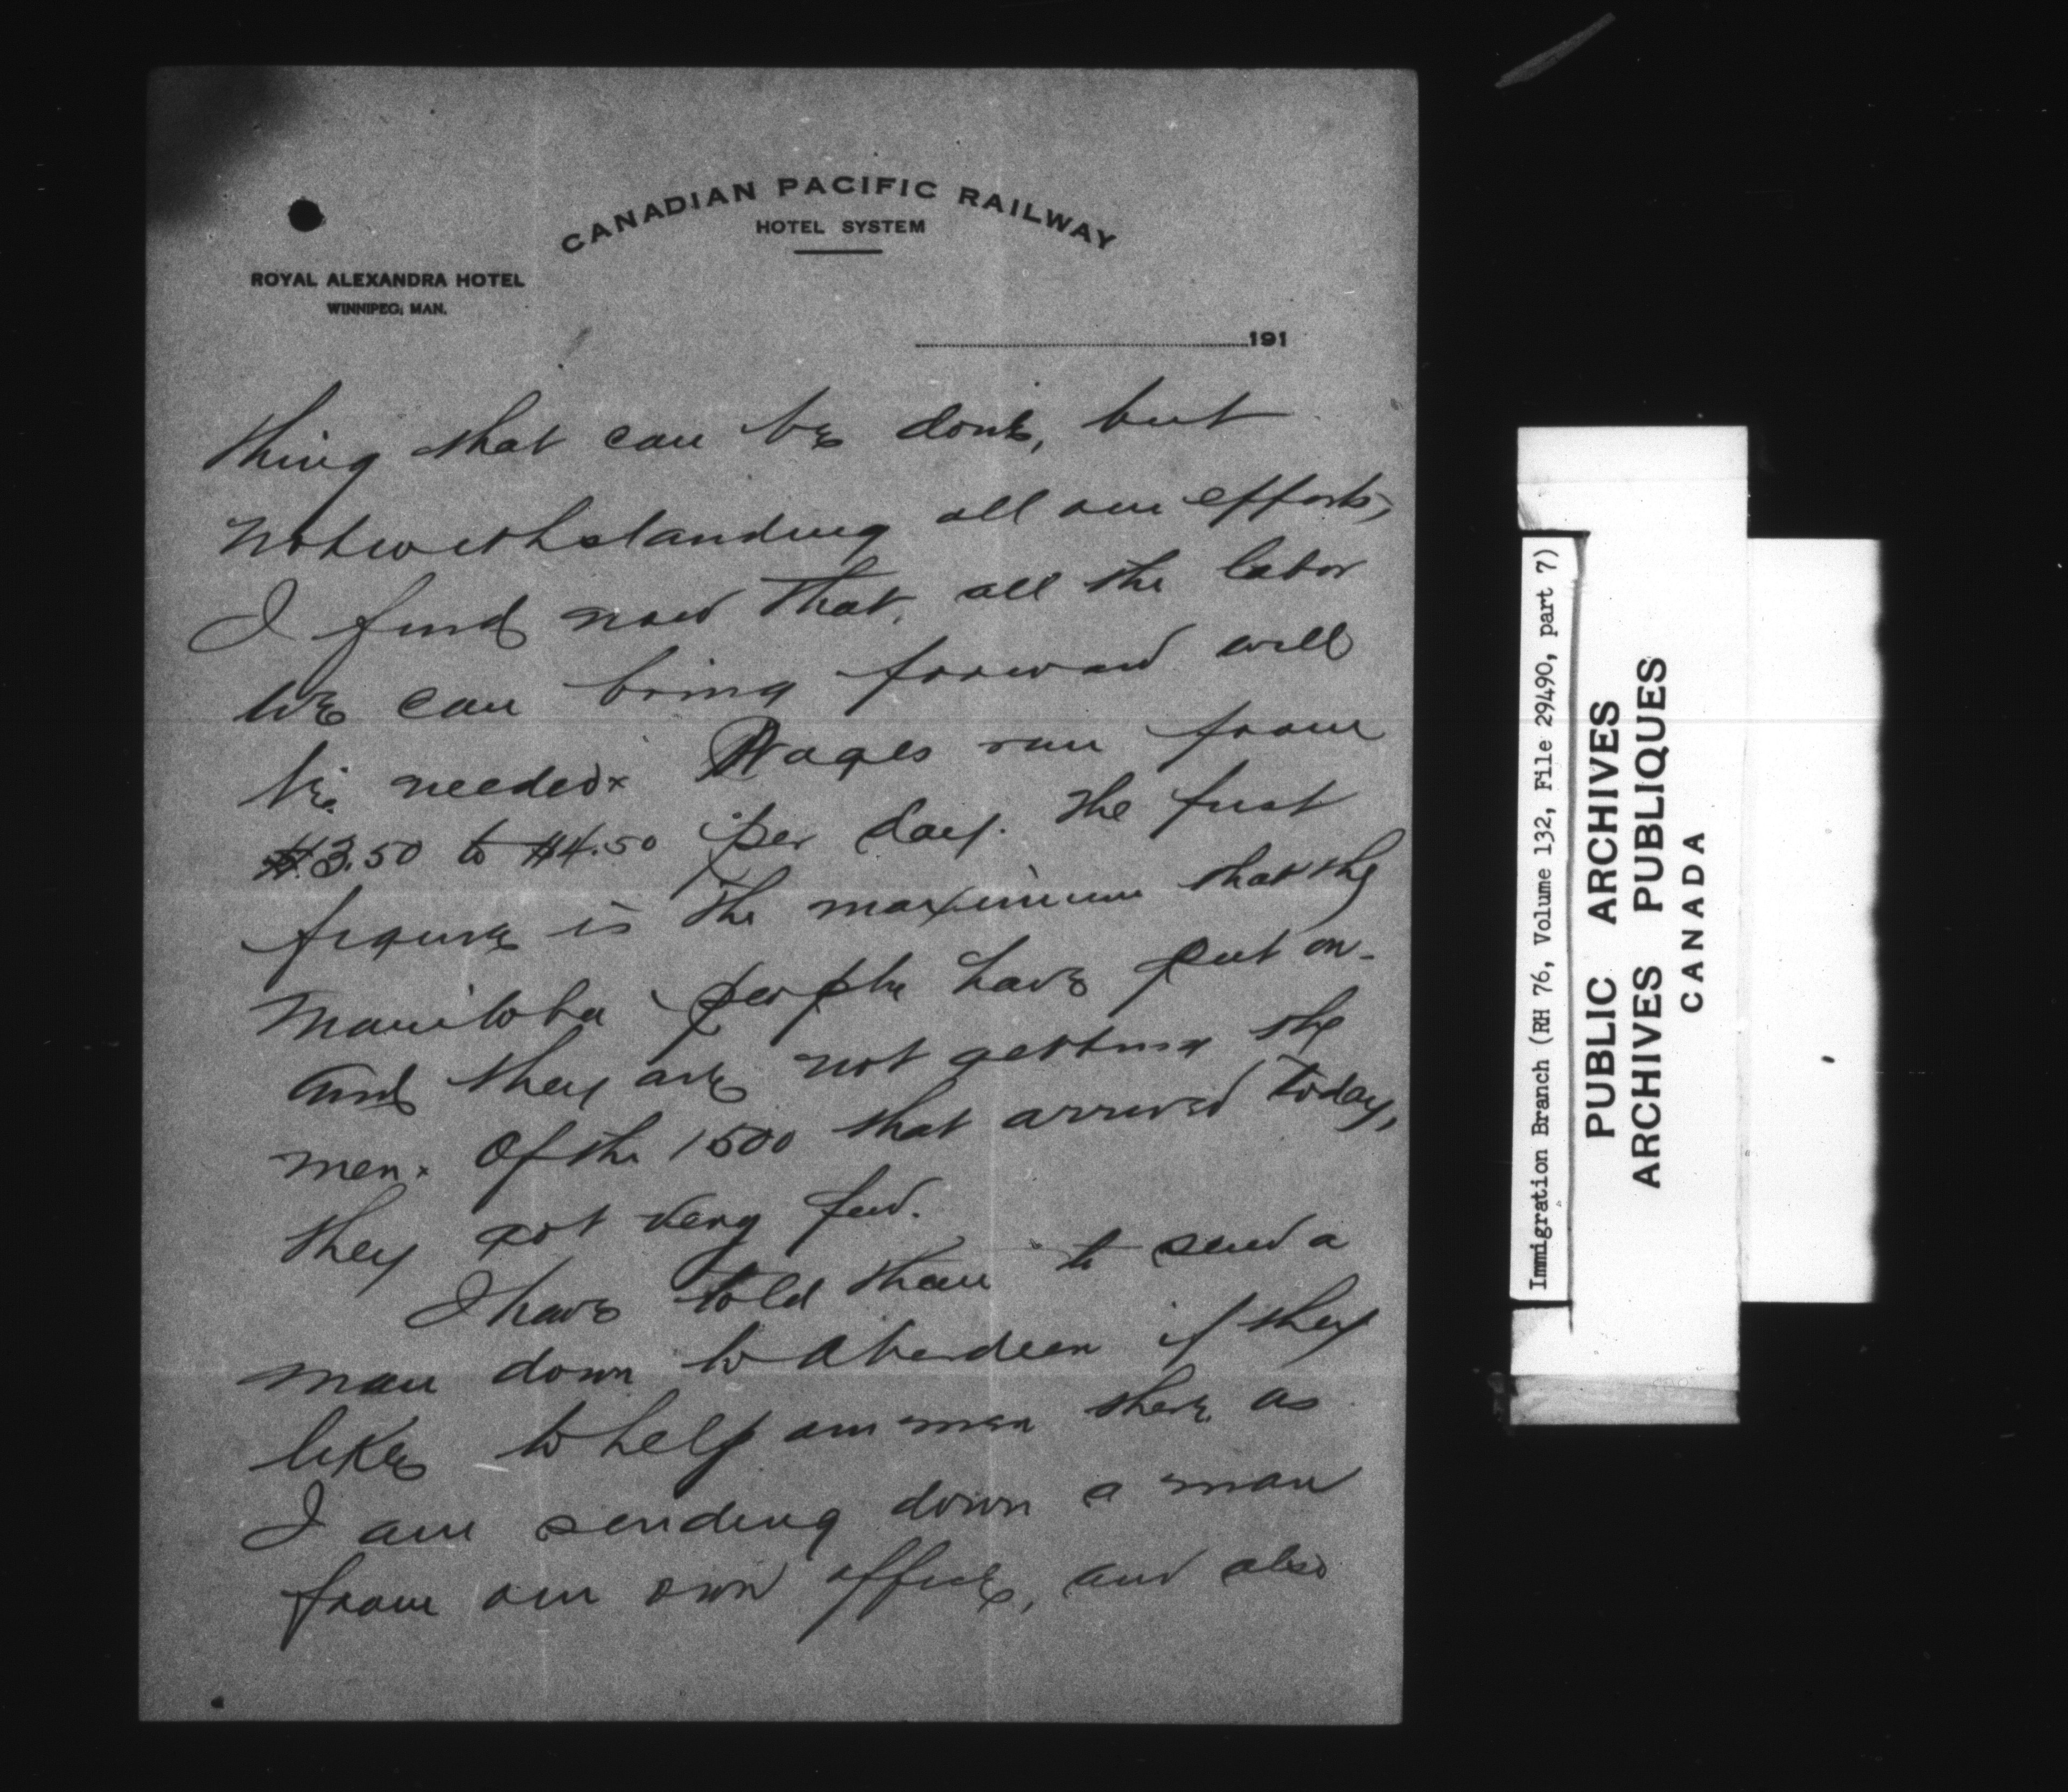 CANADIAN PACIFIC RAILWAY
HOTEL SYSTEM
ROYAL ALEXANDRA HOTEL
WINNIPEG, MAN.
191
thing that can be done, but
notwithstanding all our efforts,
I find now that, all the labor
we can bring forward will
be needed. Wages run from
$3.50 to $4.50 per day. The first
figure is the maximum that the
Manitoba people have put on.
and they are not getting the
men. Of the 1500 that arrived today,
they got very few.
I have told them to send a
man down to Aberdeen if they
like, to help our men there as
I am sending down a man
from our own office, and also
Immigration Branch (RH 76, Volume 132, File 29490, part 7)
PUBLIC ARCHIVES
ARCHIVES PUBLIQUES
CANADA